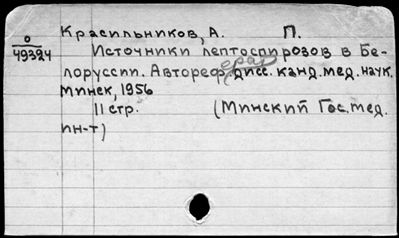 Красильников, А. П.
О
49324
Источники лептоспирозов в Бе-
лоруссии. Автореф. дисс. канд. мед. наук.
Минск, 1956
11 стр. (Минский Гос. мед.
ин-т)